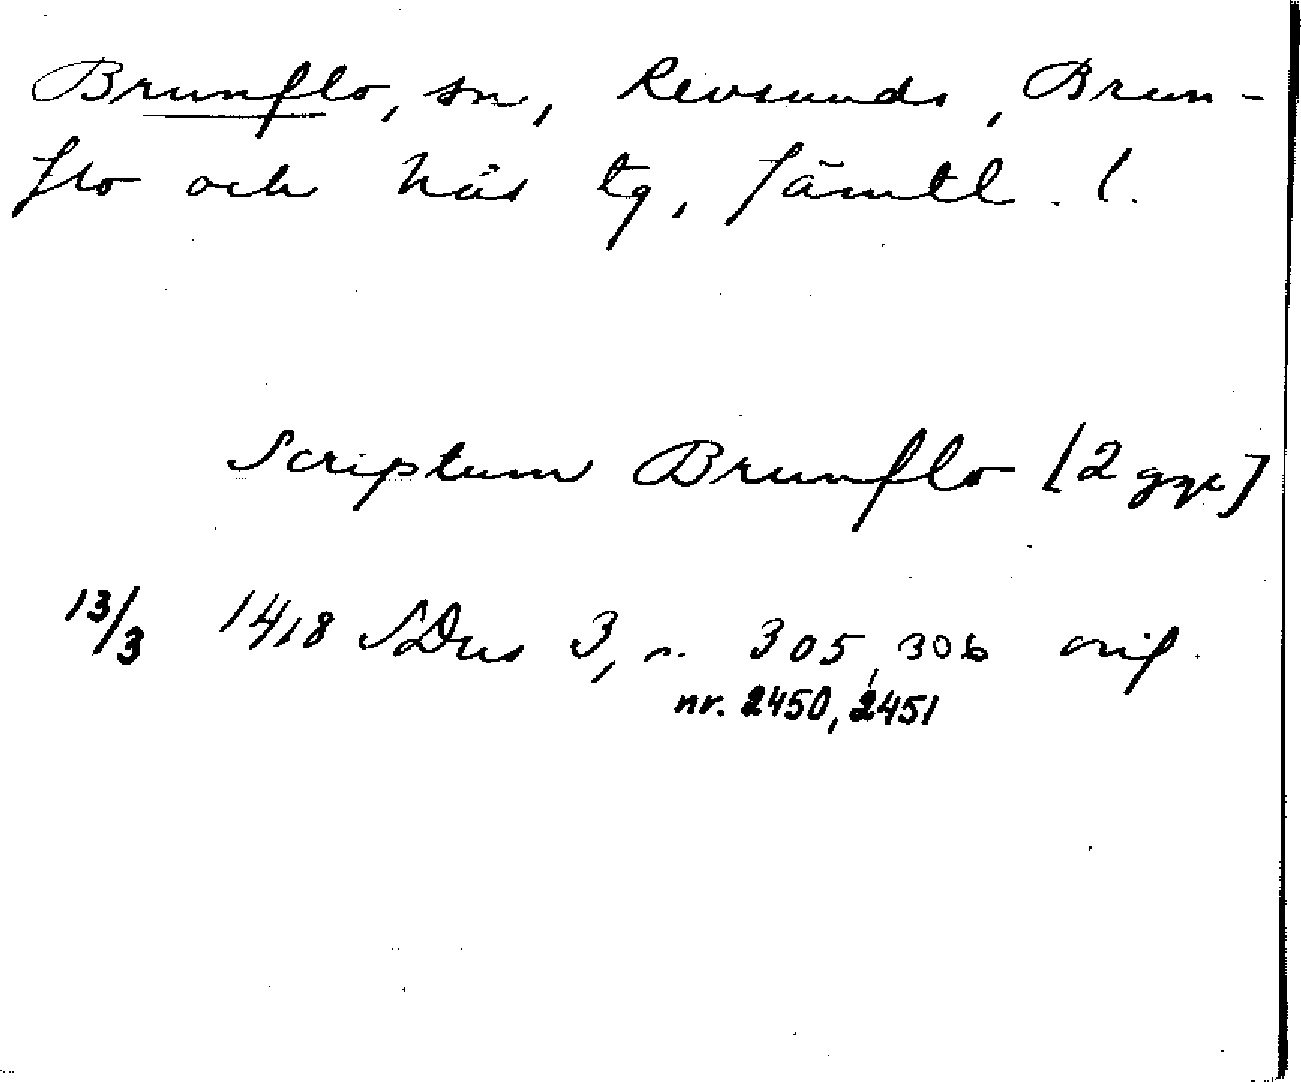 Brunflo, sn, Revsunds, Brun-
flo och Näs tg, Jämtl. l.
Scriptum Brunflo [2 ggr]
13/3 1418 SDns 3, s. 305, 306 orig.
nr. 2450, 2451